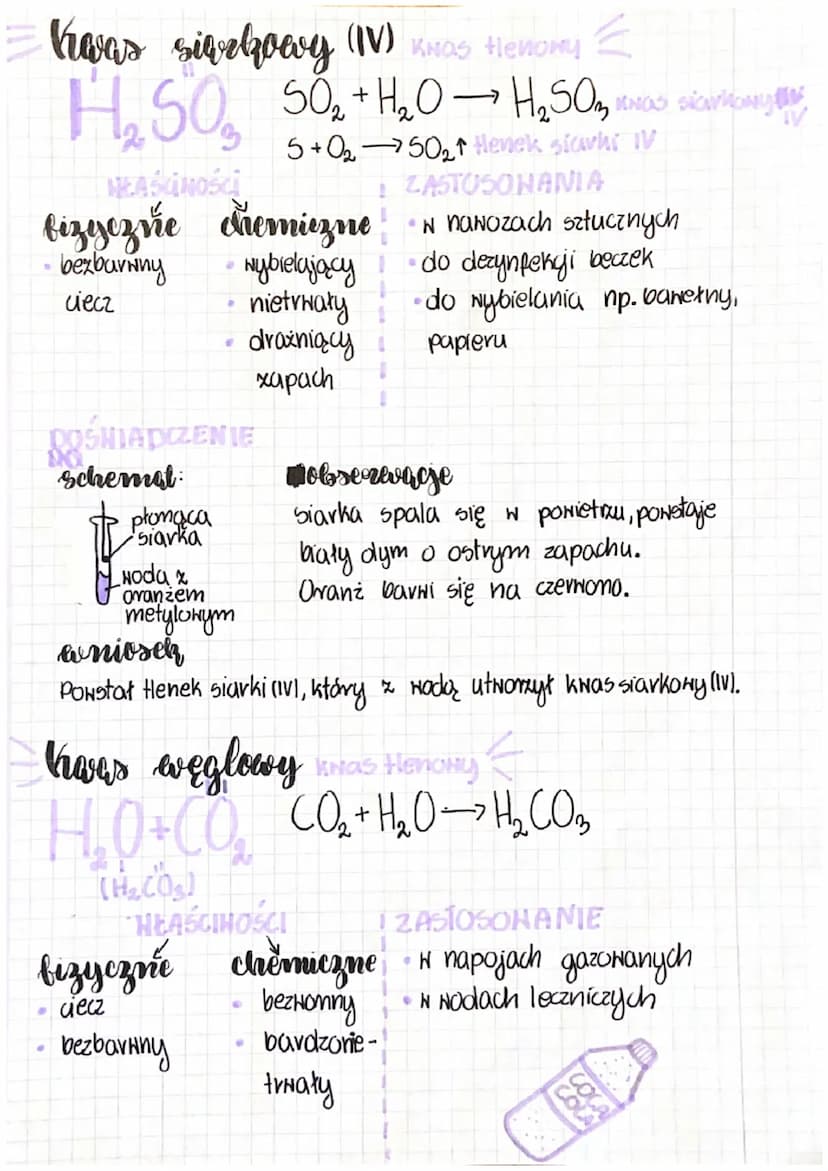 Kwas siarkowy (IV) kwas tlenowy
H₂SO₃
I II
SO₂ + H₂O → H₂SO₃ kwas siarkowy IV
S + O₂ → SO₂↑ tlenek siarki IV
WŁAŚCIWOŚCI
fizyczne
• bezbarwny
ciecz
chemiczne
• wybielający
• nietrwały
• drażniący
zapach
ZASTOSOWANIA
• w nawozach sztucznych
• do dezynfekcji beczek
• do wybielania np. bawełny,
papieru
DOŚWIADCZENIE
schemat:
płonąca
siarka
woda z
oranżem
metylowym
obserwacje
siarka spala się w powietrzu, powstaje
biały dym o ostrym zapachu.
Oranż barwi się na czerwono.
wniosek
Powstał tlenek siarki (IV), który z wodą utworzył kwas siarkowy (IV).
Kwas węglowy kwas tlenowy
H₂O+CO₂
I II
(H₂CO₃)
CO₂ + H₂O → H₂CO₃
WŁAŚCIWOŚCI
fizyczne
• ciecz
• bezbarwny
chemiczne
• bezwonny
• bardzo nie-
trwały
ZASTOSOWANIE
• w napojach gazowanych
• w wodach leczniczych
COCA
COLA